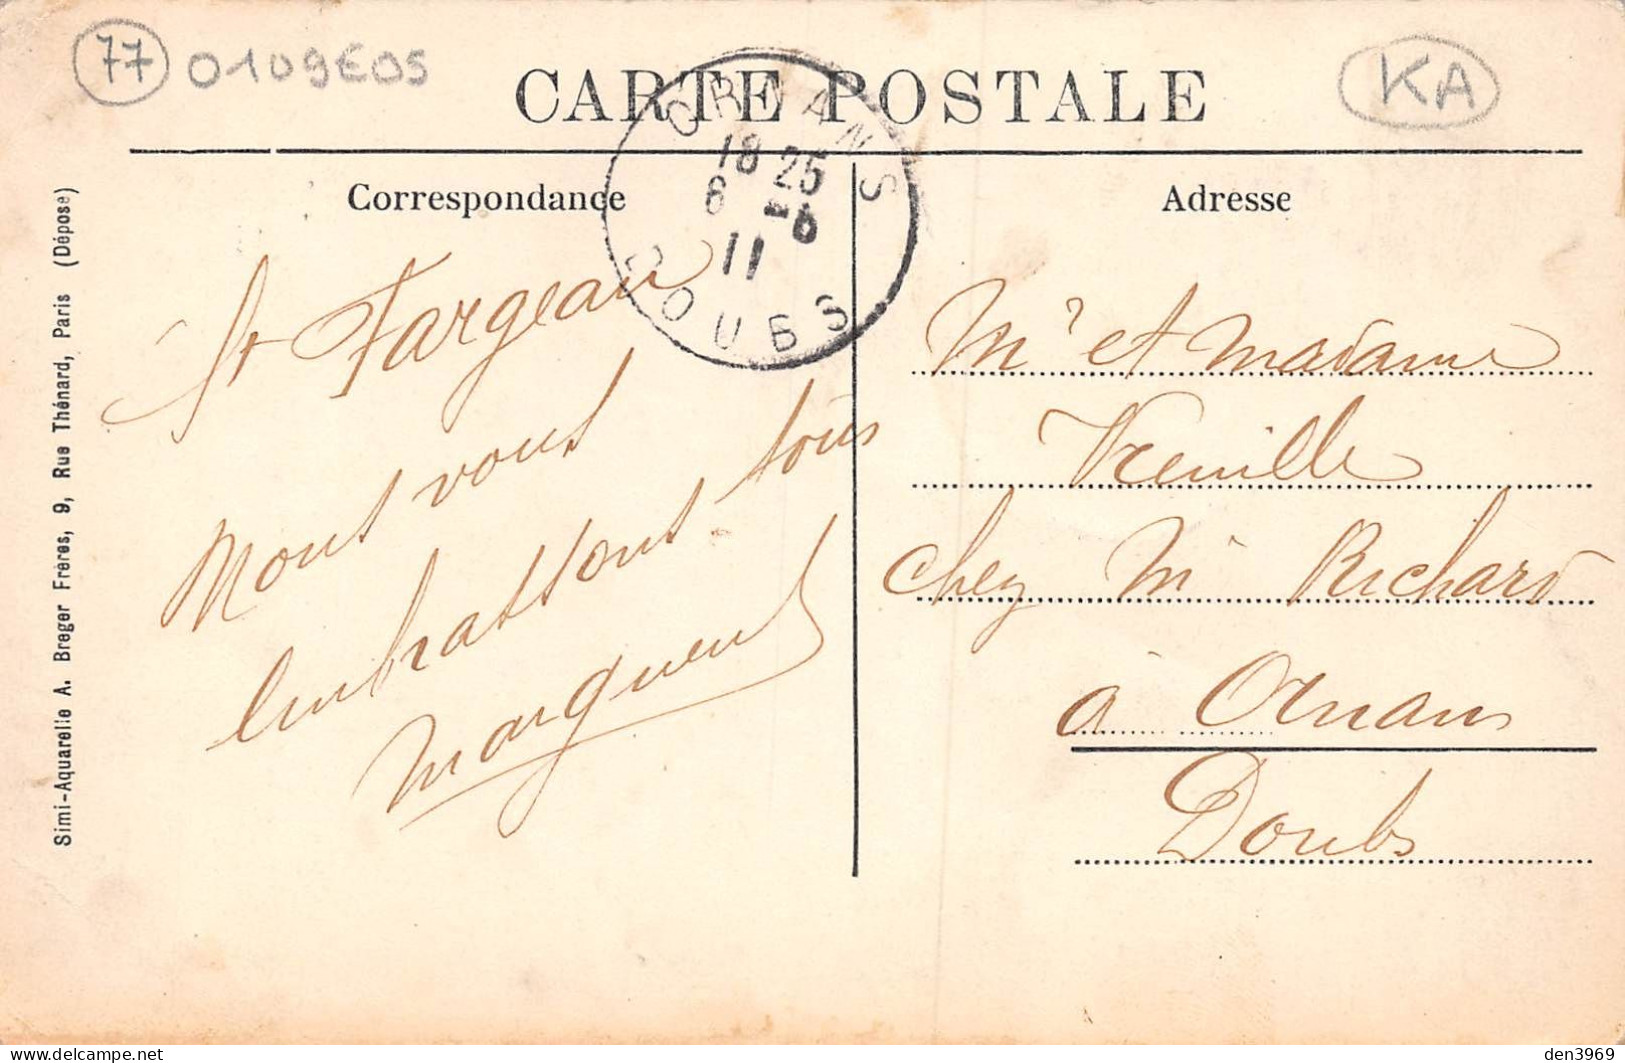 77 0109E05
KA
CARTE POSTALE
ORNANS
18 25
6 -6
11
DOUBS
Correspondance
Adresse
Simi-Aquarelle A. Breger Frères, 9, Rue Thénard, Paris (Déposé)
St Fargeau
Nous vous
embrassons tous
Marguerite
Mr et Madame
chez Mr Richard
à Ornans
Doubs
den3969